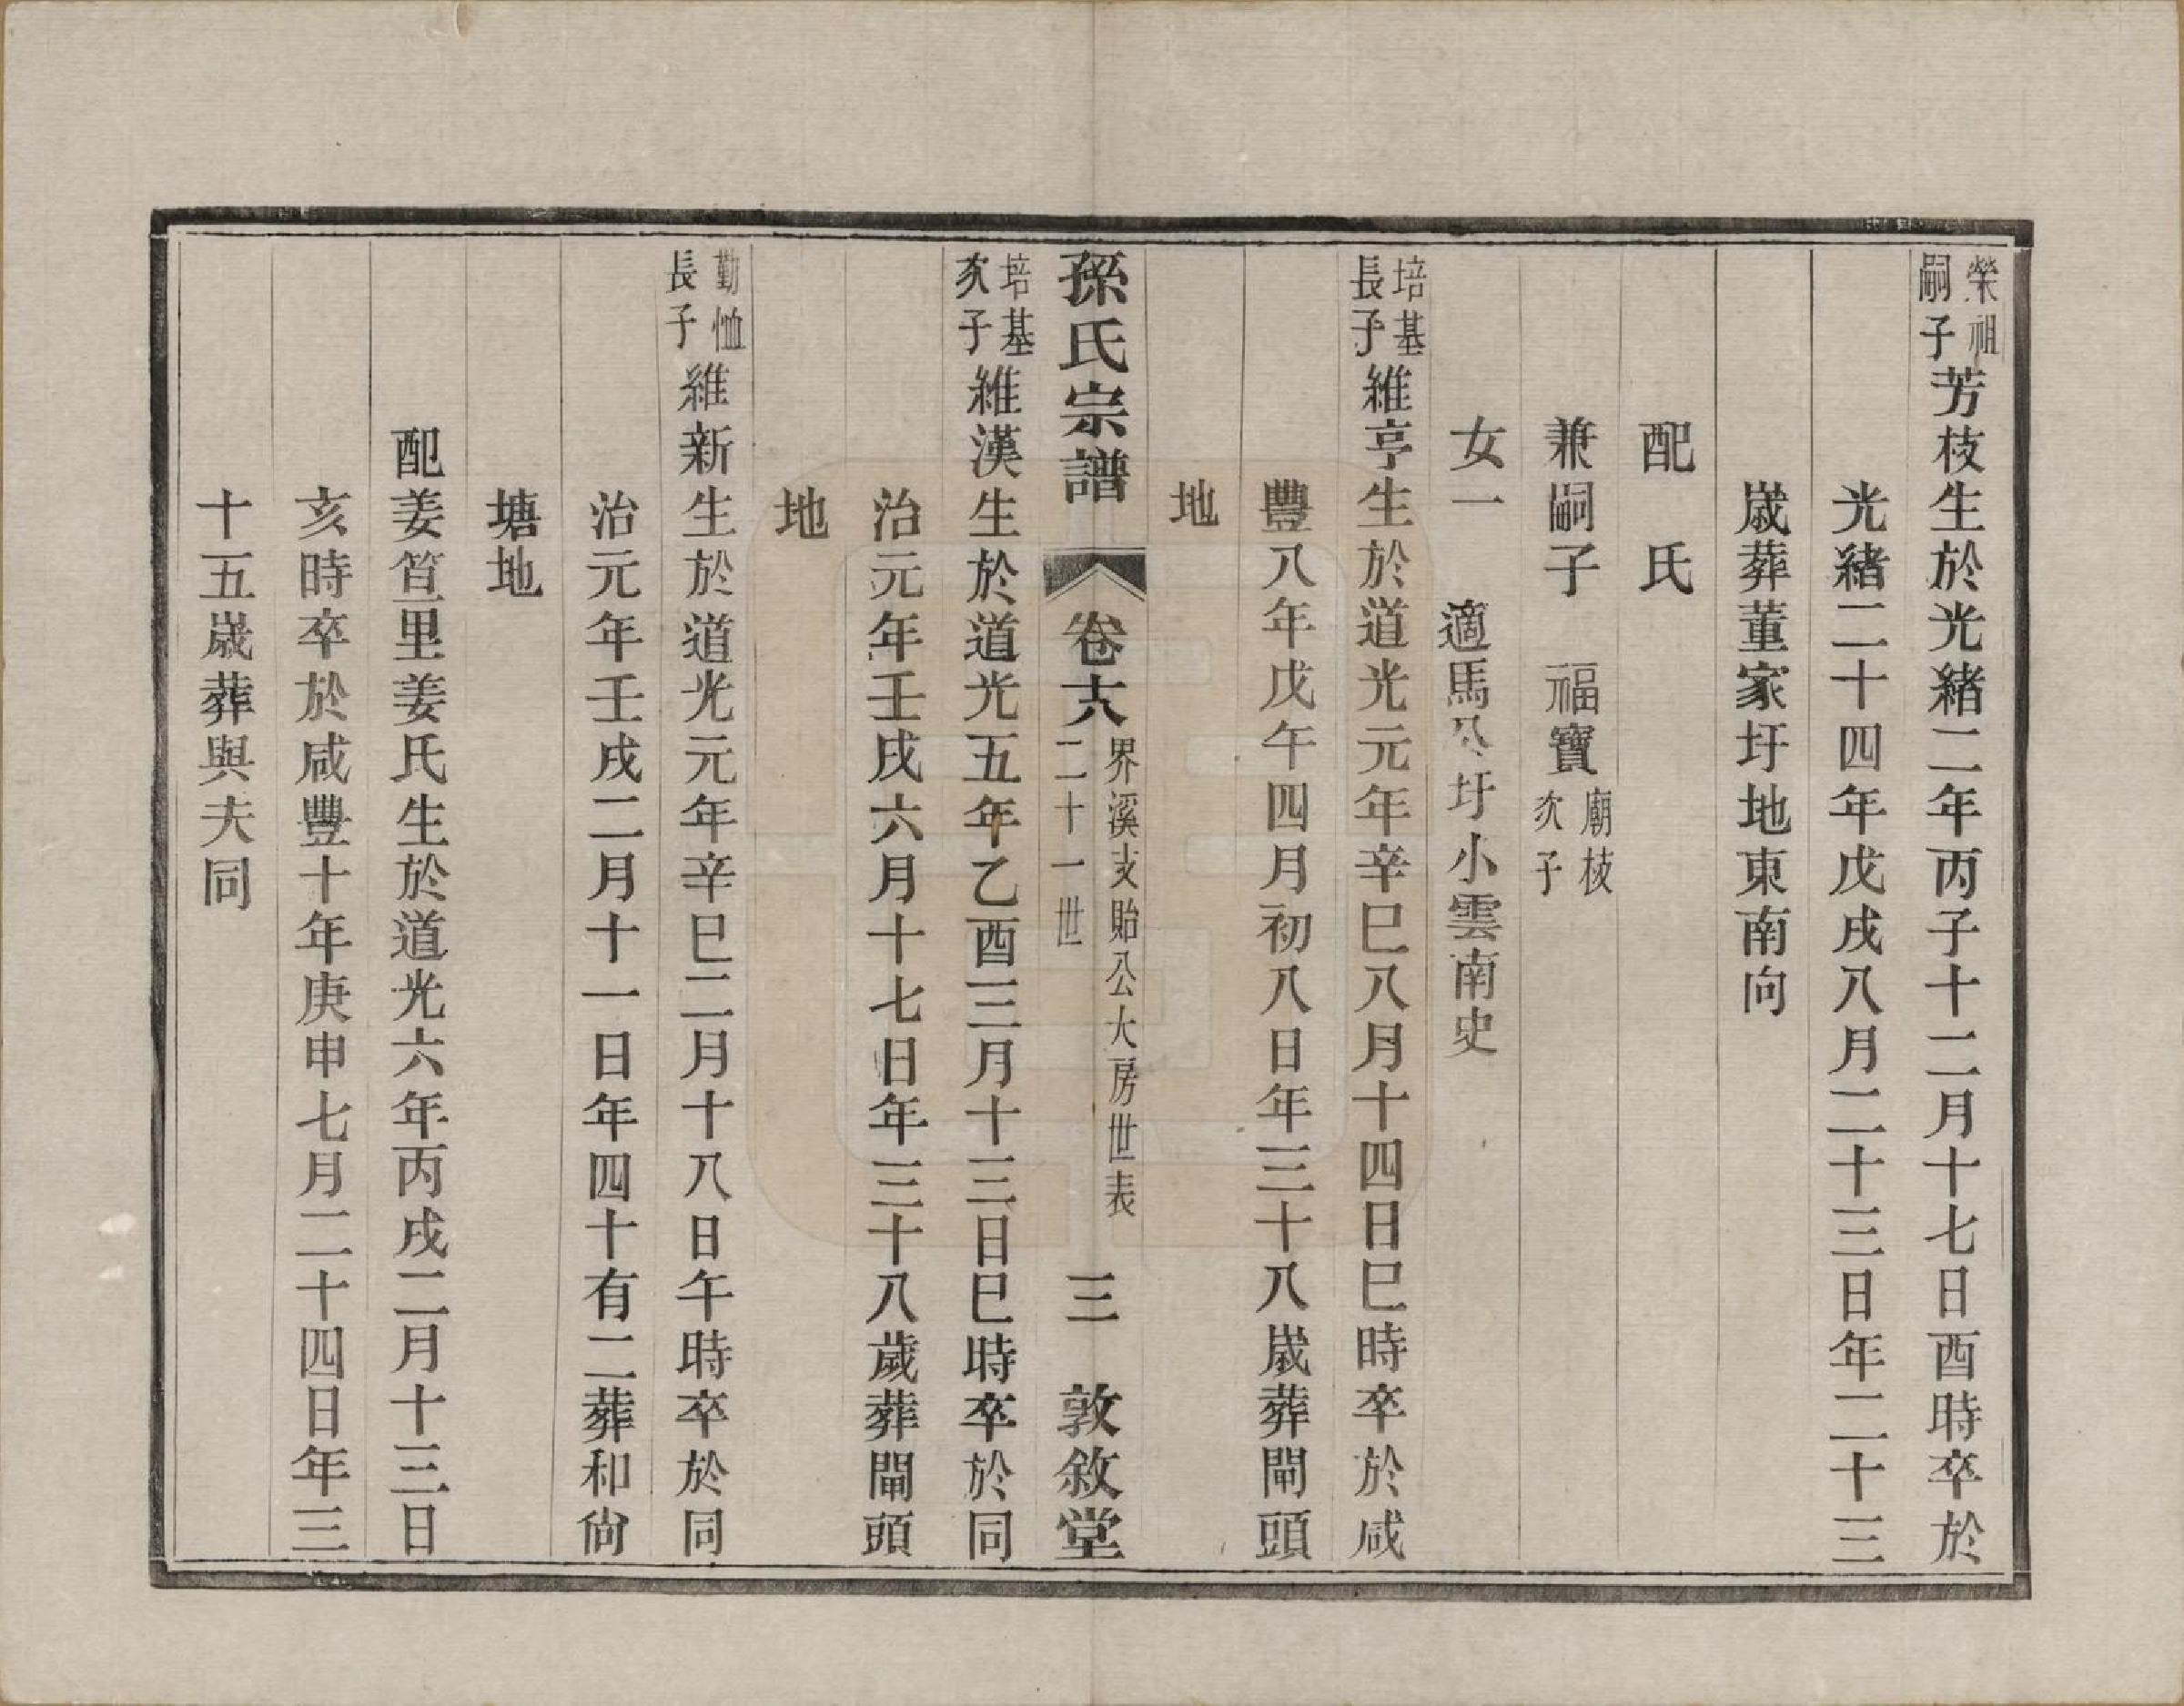 榮祖嗣子芳枝生於光緒二年丙子十二月十七日酉時卒於
光緒二十四年戊戌八月二十三日年二十三
歲葬董家圩地東南向
配　氏
兼嗣子　福寶廟枝次子
女一　適馬公圩小雲南史
培基長子維亨生於道光元年辛巳八月十四日巳時卒於咸
豐八年戊午四月初八日年三十八歲葬閘頭
地
孫氏宗譜　卷十八　界溪支貽公大房世表二十一世　三　敦敘堂
培基次子維漢生於道光五年乙酉三月十三日巳時卒於同
治元年壬戌六月十七日年三十八歲葬閘頭
地
勤恤長子維新生於道光元年辛巳二月十八日午時卒於同
治元年壬戌二月十一日年四十有二葬和尚
塘地
配姜笪里姜氏生於道光六年丙戌二月十三日
亥時卒於咸豐十年庚申七月二十四日年三
十五歲葬與夫同